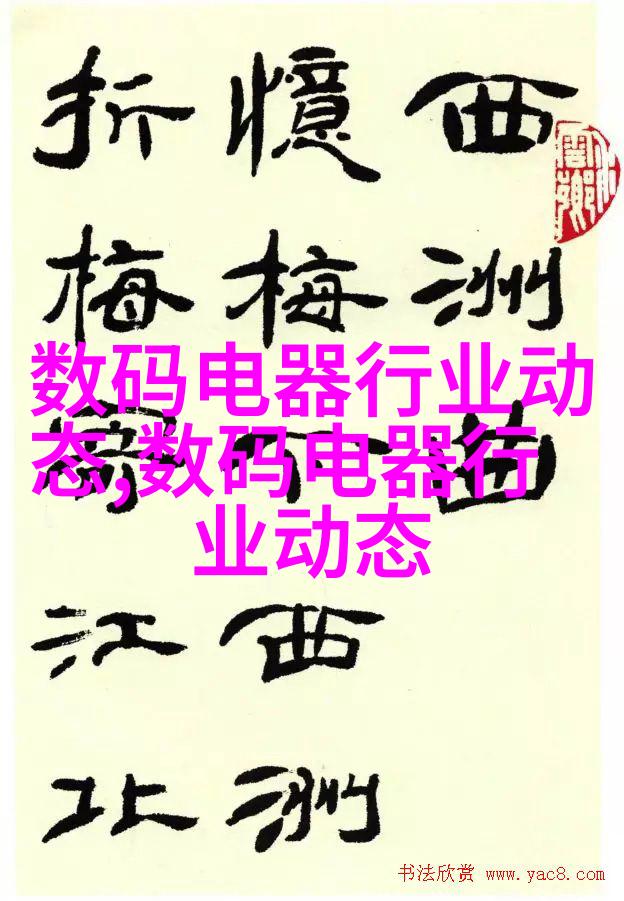 西洲曲
憶梅下西洲
折梅寄江北
数码电器行业动
态,数码电器行
业动态
书法欣赏 www.yac8.com